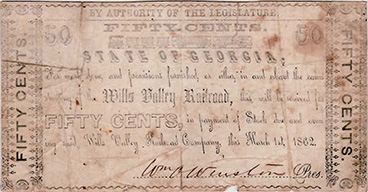 BY AUTHORITY OF THE LEGISLATURE.
50 FIFTY CENTS. 50
STATE OF GEORGIA,
For work done, and provisions furnished, or other, in and about the
Wills Valley Railroad, this will be received for
FIFTY CENTS, in payment of Stock due and
Wills Valley Railroad Company, this March 1st, 1862.
Wm O Winston Pres.
FIFTY CENTS.
FIFTY CENTS.